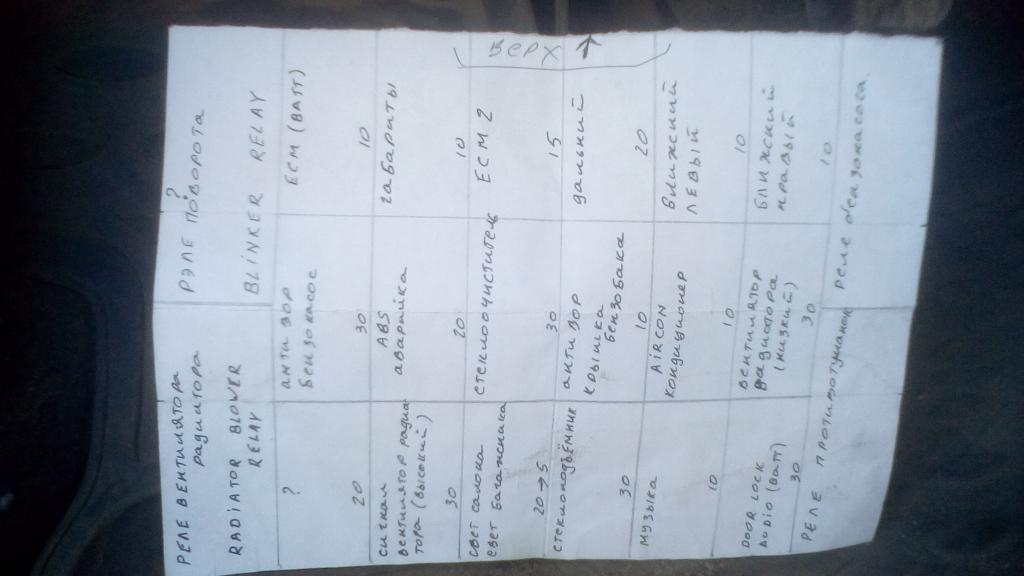 РЕЛЕ ВЕНТИЛЯТОРА
радиатора
RADiATOR BLOWER
RELAY
?
РЭЛЕ ПОВОРОТА
BLiNKER RELAY
?
20
анти вор
бензонасос
30
ECM (BATT)
10
сигнал
вентилятор радиа-
тора (высокий)
30
ABS
аварийка
20
габариты
10
свет салона
свет багажника
20→5
стеклоочиститель
30
ECM 2
15
(ВЕРХ ↑)
стеклоподъёмник
30
анти вор
крышка
бензобака
10
дальний
20
музыка
10
AiRCON
кондиционер
10
ближский
ЛЕВЫЙ
10
DOOR LOCK
AUDiO (Batt)
30
вентилятор
радиатора
(низкий)
30
ближский
правый
10
РЕЛЕ противотуманок
реле бензонасоса